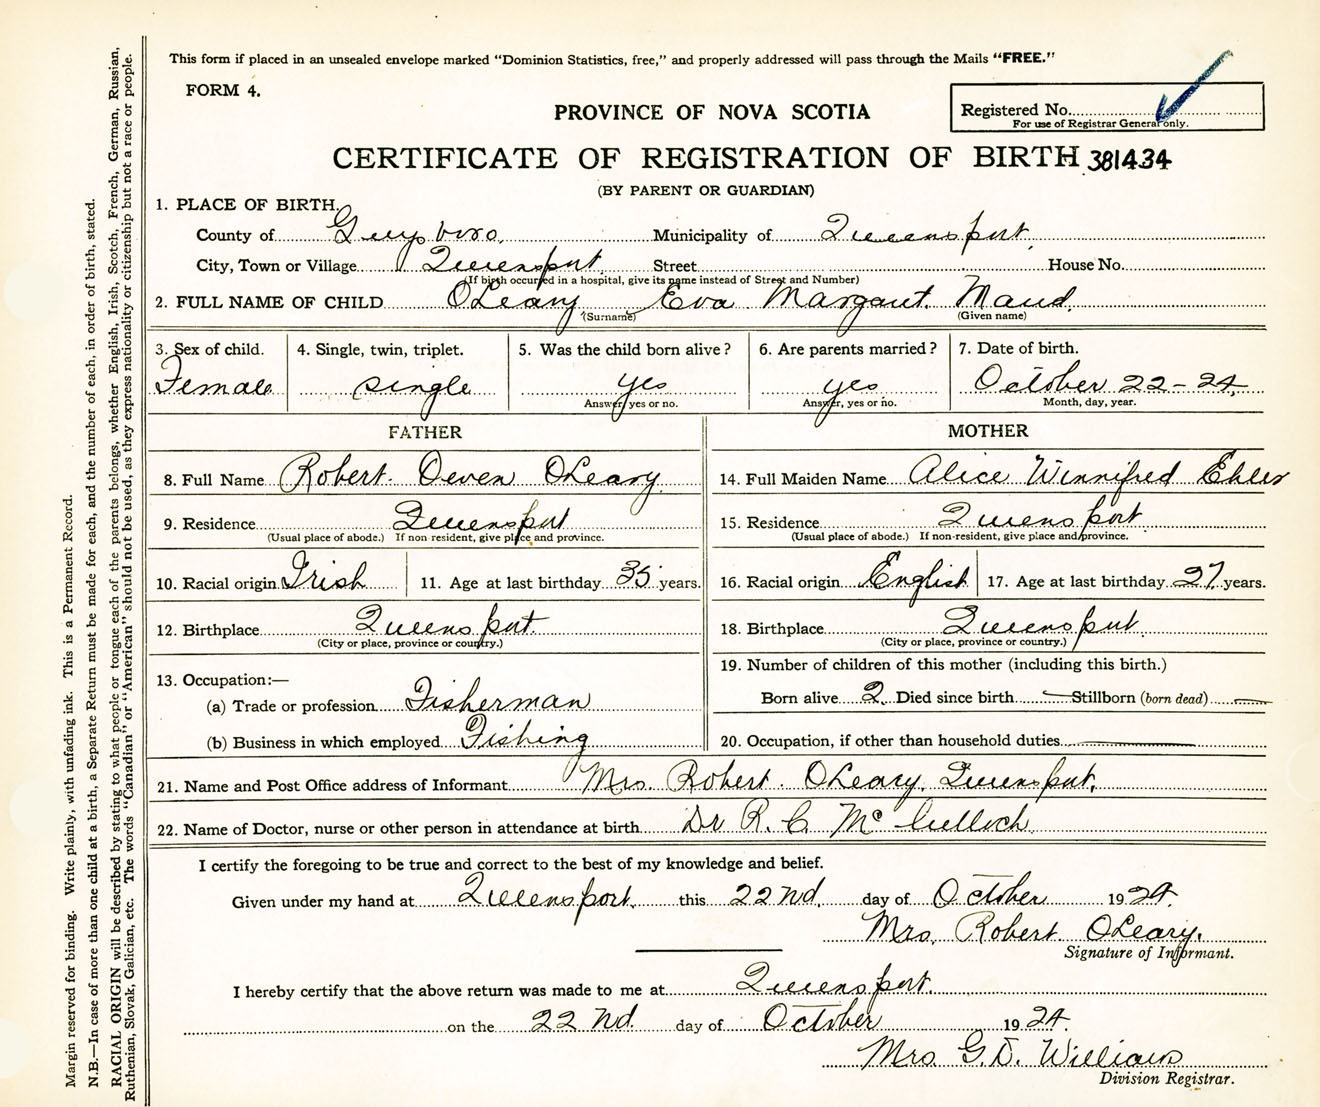 This form if placed in an unsealed envelope marked "Dominion Statistics, free," and properly addressed will pass through the Mails "FREE."
FORM 4.
PROVINCE OF NOVA SCOTIA
Registered No.
For use of Registrar General only.
CERTIFICATE OF REGISTRATION OF BIRTH 381434
(BY PARENT OR GUARDIAN)
1. PLACE OF BIRTH.
County of Guysboro, Municipality of Queensport,
City, Town or Village Queensport, Street House No.
(If birth occurred in a hospital, give its name instead of Street and Number)
2. FULL NAME OF CHILD O'Leary Eva Margaret Maud,
(Surname) (Given name)
3. Sex of child. 4. Single, twin, triplet. 5. Was the child born alive? 6. Are parents married? 7. Date of birth.
Female single yes yes October 22-24,
Answer yes or no. Answer, yes or no. Month, day, year.
FATHER MOTHER
8. Full Name Robert Owen O'Leary 14. Full Maiden Name Alice Winnifred Ehler
9. Residence Queensport 15. Residence Queensport
(Usual place of abode.) If non-resident, give place and province. (Usual place of abode.) If non-resident, give place and province.
10. Racial origin Irish 11. Age at last birthday 35 years. 16. Racial origin English 17. Age at last birthday 27 years.
12. Birthplace Queensport. 18. Birthplace Queensport
(City or place, province or country.) (City or place, province or country.)
13. Occupation:— 19. Number of children of this mother (including this birth.)
(a) Trade or profession Fisherman Born alive 2. Died since birth — Stillborn (born dead) —
(b) Business in which employed Fishing 20. Occupation, if other than household duties —
21. Name and Post Office address of Informant Mrs. Robert O'Leary, Queensport,
22. Name of Doctor, nurse or other person in attendance at birth Dr R. C. McCulloch
I certify the foregoing to be true and correct to the best of my knowledge and belief.
Given under my hand at Queensport, this 22nd. day of October 1924.
Mrs. Robert O'Leary.
Signature of Informant.
I hereby certify that the above return was made to me at Queensport.
on the 22nd day of October 1924.
Mrs G. D. Williams
Division Registrar.
Margin reserved for binding. Write plainly, with unfading ink. This is a Permanent Record.
N.B.—In case of more than one child at a birth, a Separate Return must be made for each, and the number of each, in order of birth, stated.
RACIAL ORIGIN will be described by stating to what people or tongue each of the parents belongs, whether English, Irish, Scotch, French, German, Russian,
Ruthenian, Slovak, Galician, etc. The words "Canadian" or "American" should not be used, as they express nationality or citizenship but not a race or people.